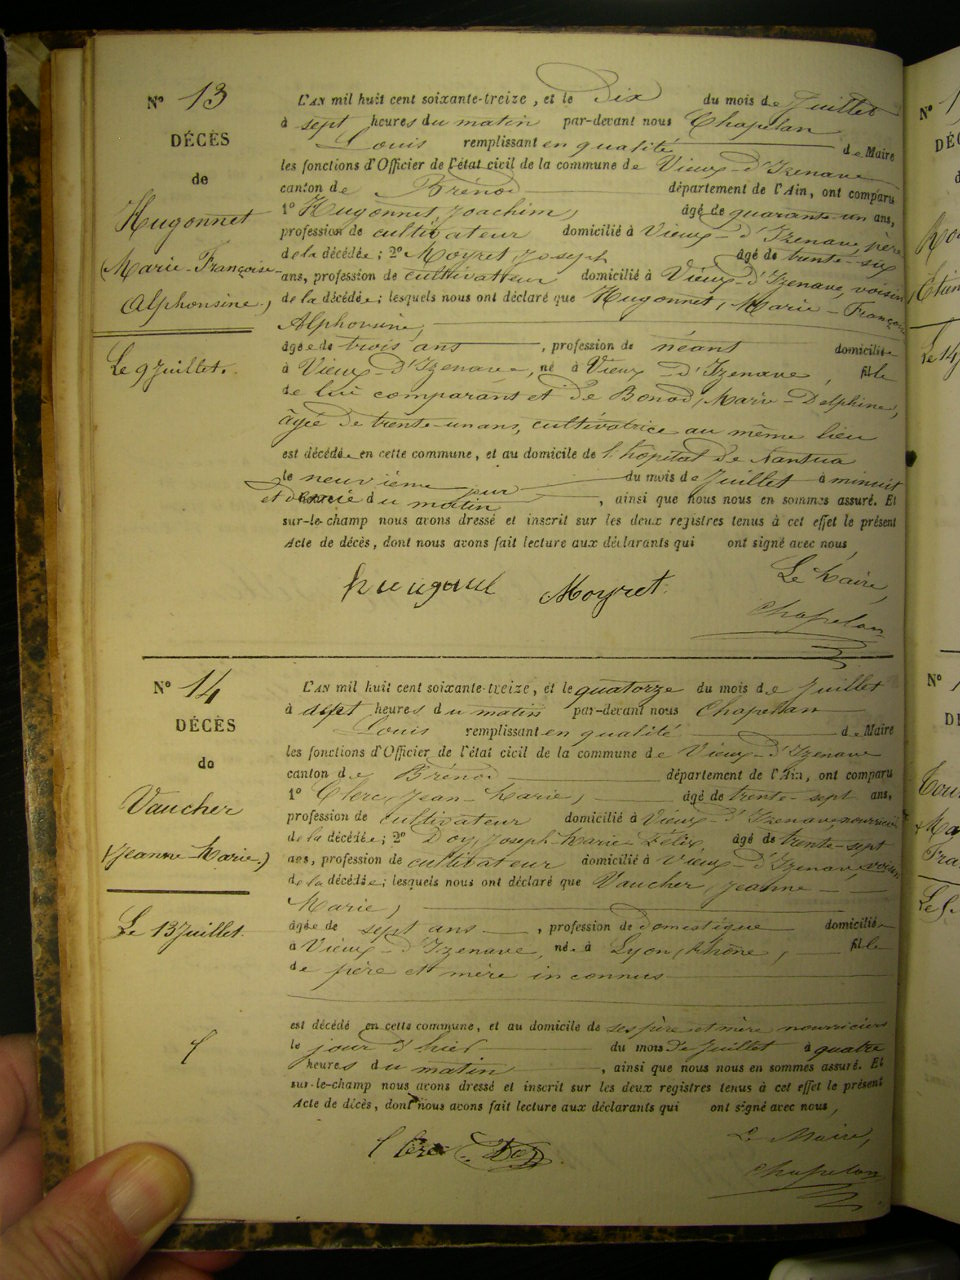 N° 13
DÉCÈS
de
Hugonnet
(Marie-Françoise-
Alphonsine,)
Le 9 Juillet.
L'AN mil huit cent soixante-treize, et le dix du mois de Juillet
à sept heures du matin par-devant nous Chapelan
Louis remplissant en qualité de Maire
les fonctions d'Officier de l'état civil de la commune de Vieux-d'Izenave
canton de Brénod département de l'Ain, ont comparu
1° Hugonnet, Joachim, âgé de quarante-un ans,
profession de cultivateur domicilié à Vieux-d'Izenave, père
de la décédée; 2° Moyret Joseph âgé de trente-six
ans, profession de cultivateur domicilié à Vieux-d'Izenave, voisin
de la décédée; lesquels nous ont déclaré que Hugonnet, Marie-Françoise
Alphonsine,
âgée de trois ans, profession de néant domiciliée
à Vieux-d'Izenave, né à Vieux d'Izenave, fille
de lui comparant et de Bonod, Marie-Delphine,
âgée de trente-un ans, cultivatrice au même lieu
est décédée en cette commune, et au domicile de l'hôpital de Nantua
le neuvième jour du mois de Juillet à minuit
et demie du matin, ainsi que nous nous en sommes assuré. Et
sur-le-champ nous avons dressé et inscrit sur les deux registres tenus à cet effet le présent
Acte de décès, dont nous avons fait lecture aux déclarants qui ont signé avec nous,
Le Maire,
Moyret.
Chapelan
N° 14
DÉCÈS
de
Vaucher
(Jeanne-Marie.)
Le 13 Juillet.
L'AN mil huit cent soixante-treize, et le quatorze du mois de Juillet
à sept heures du matin par-devant nous Chapelan
Louis remplissant en qualité de Maire
les fonctions d'Officier de l'état civil de la commune de Vieux-d'Izenave
canton de Brénod département de l'Ain, ont comparu
1° Clerc, Jean-Marie, âgé de trente-sept ans,
profession de cultivateur domicilié à Vieux-d'Izenave, nourricier
de la décédée; 2° Doy, Joseph-Marie Félix, âgé de trente-sept
ans, profession de cultivateur domicilié à Vieux-d'Izenave, voisin
de la décédée; lesquels nous ont déclaré que Vaucher, Jeanne
Marie,
âgée de sept ans, profession de domestique domiciliée
à Vieux-d'Izenave, né à Lyon, Rhône, fille
de père et mère inconnus
est décédé en cette commune, et au domicile de ses père et mère nourriciers
le jour d'hier du mois de Juillet à quatre
heures du matin, ainsi que nous nous en sommes assuré. Et
sur-le-champ nous avons dressé et inscrit sur les deux registres tenus à cet effet le présent
Acte de décès, dont nous avons fait lecture aux déclarants qui ont signé avec nous,
Le Maire,
Clerc Doy
Chapelan